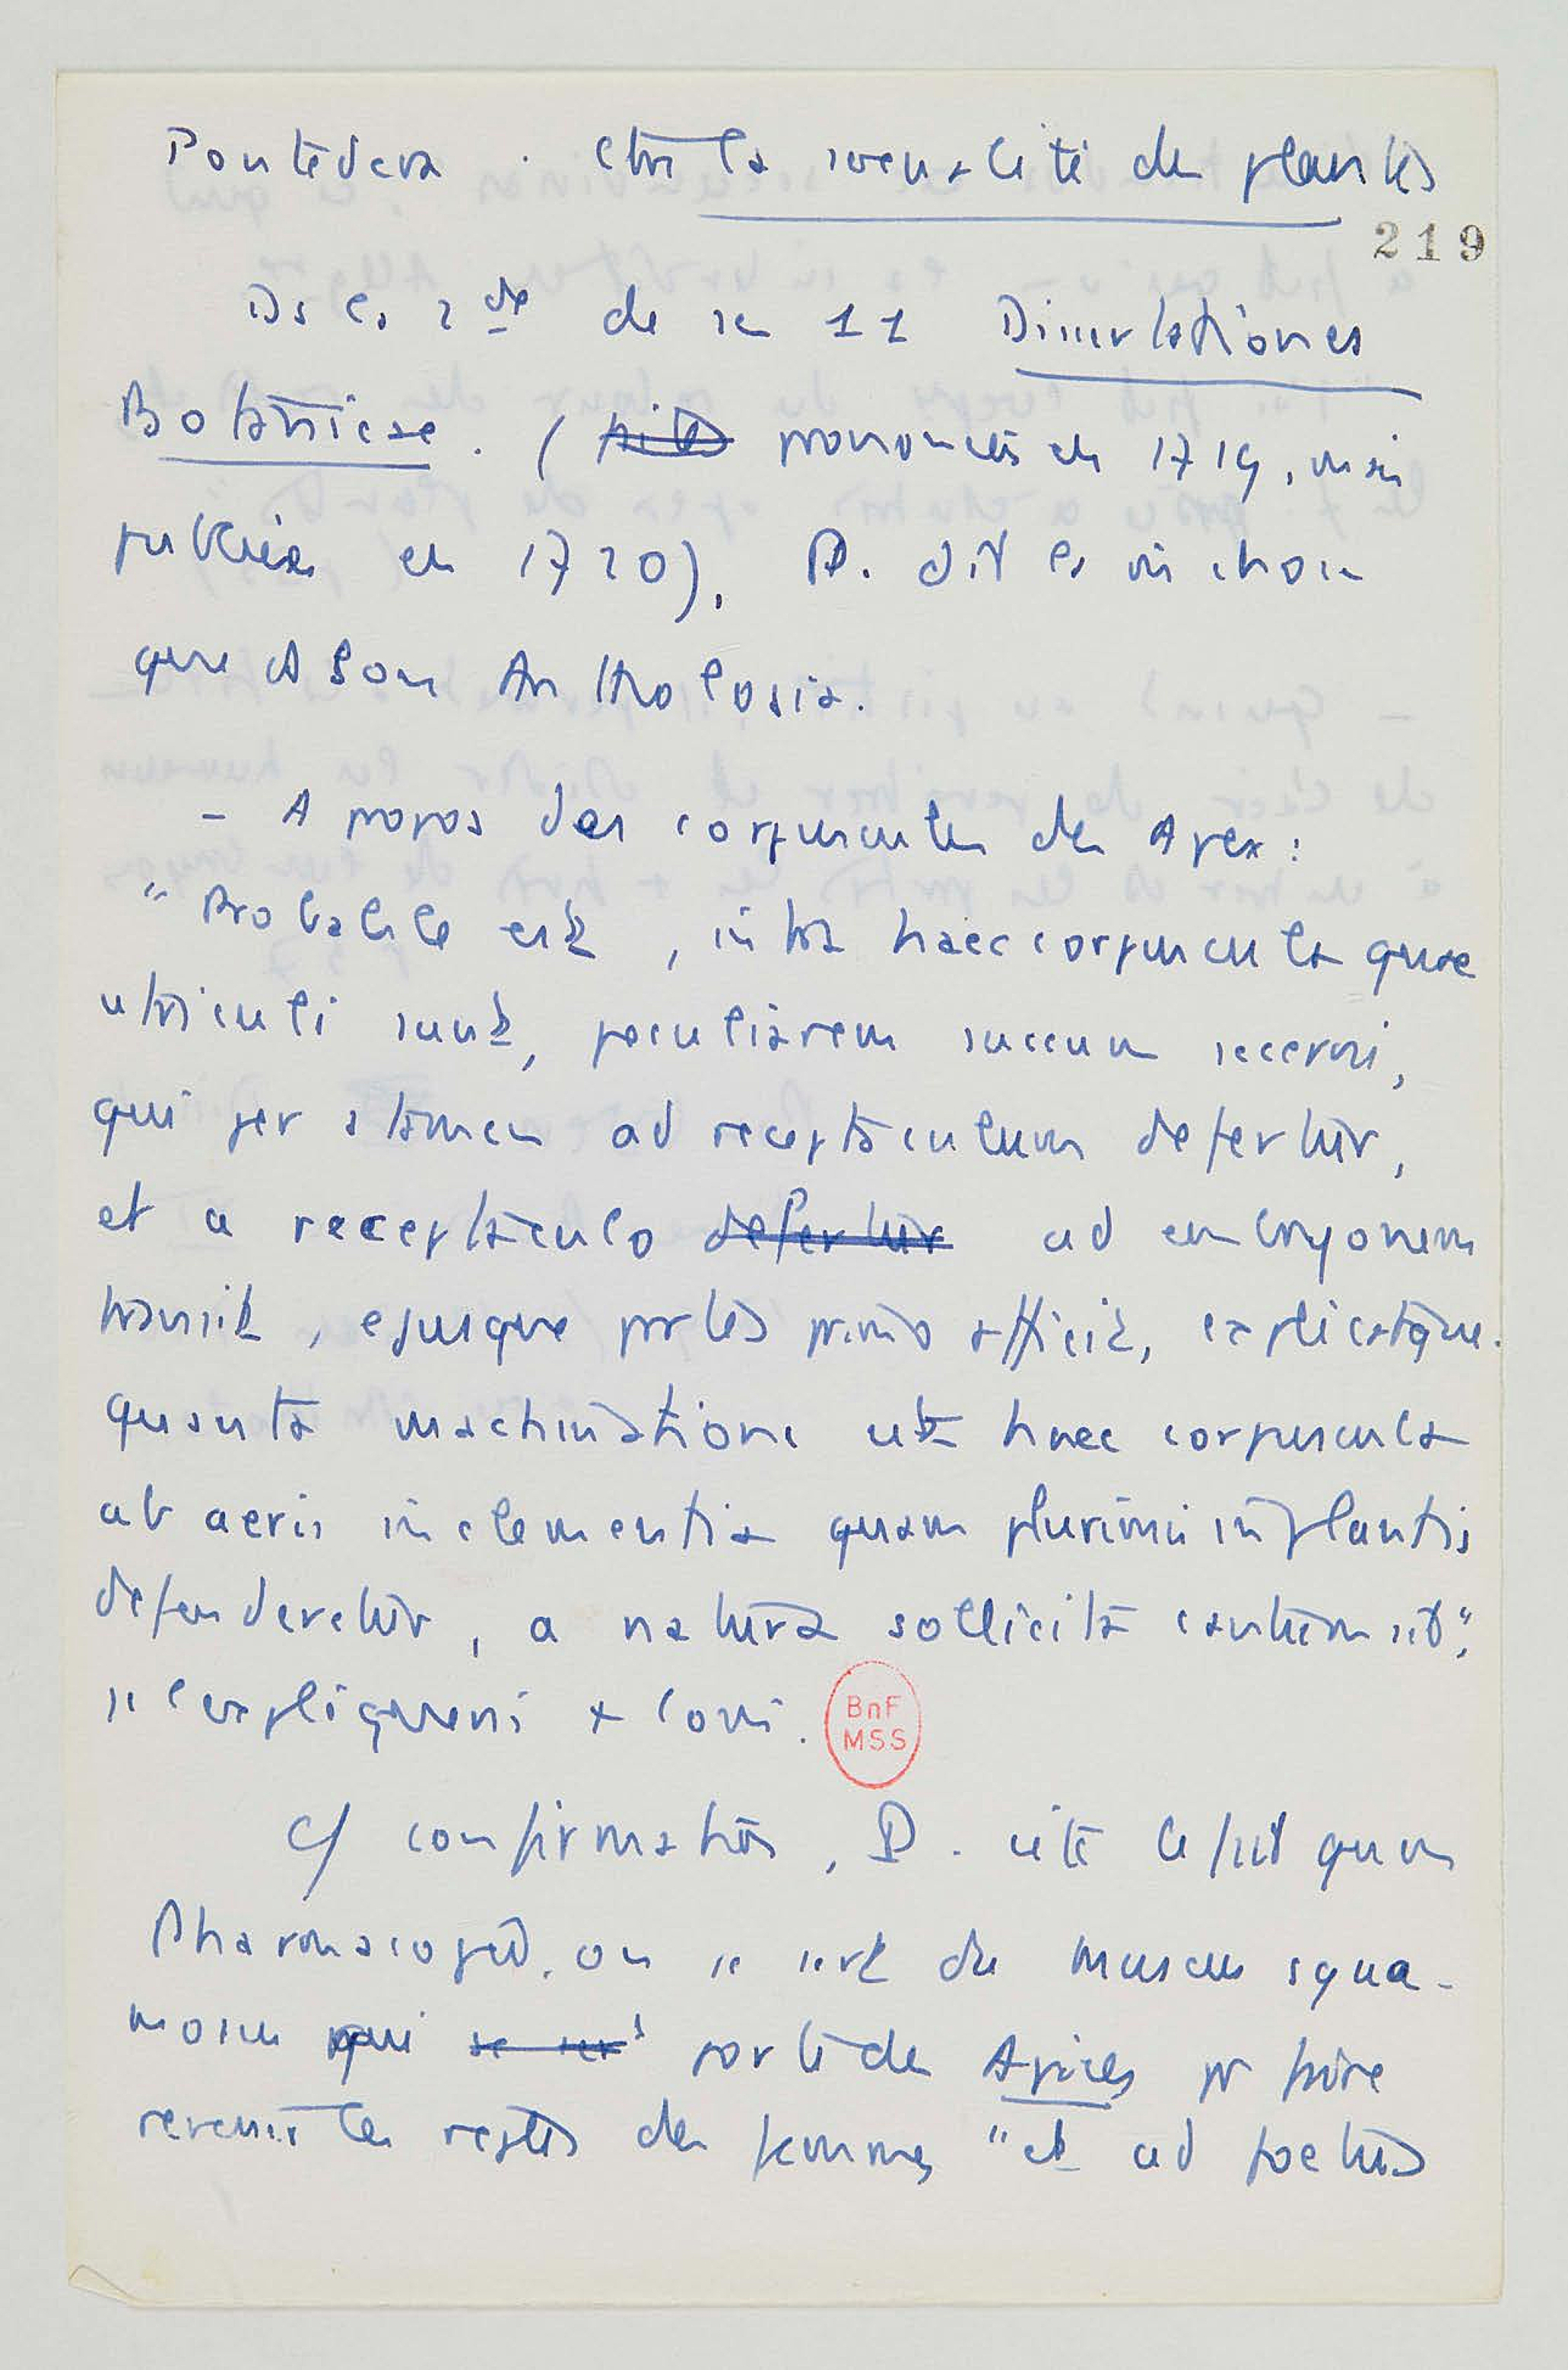 Pontedera. Ctre la sexualité des plantes
219
Ds la 2de de ses 11 Dissertationes
Botanicae. (faites prononcées en 1719, mais
publiées en 1720), P. dit la m chose
que ds son Anthologia.
- A propos des corpuscules des Apex :
"Probabile est, intra haec corpuscula quae
utriculi sunt, peculiarem succum secerni,
qui per stamen ad receptaculum defertur,
et a receptaculo defertur ad embryonem
transit, ejusque partes primo afficit, explicatque.
quanta machinatione ut haec corpuscula
ab aeris inclementia quam plurimis in plantis
defenderetur, a natura sollicita cautum sit",
je l'expliquerai + loin.
BnF
MSS
C/ confirmation, P. cite le fait qu'en
Pharmacopée, on se sert du muscus squa-
mosus qui se sert porte des Apices pr faire
revenir les règles des femmes "et ad foetus